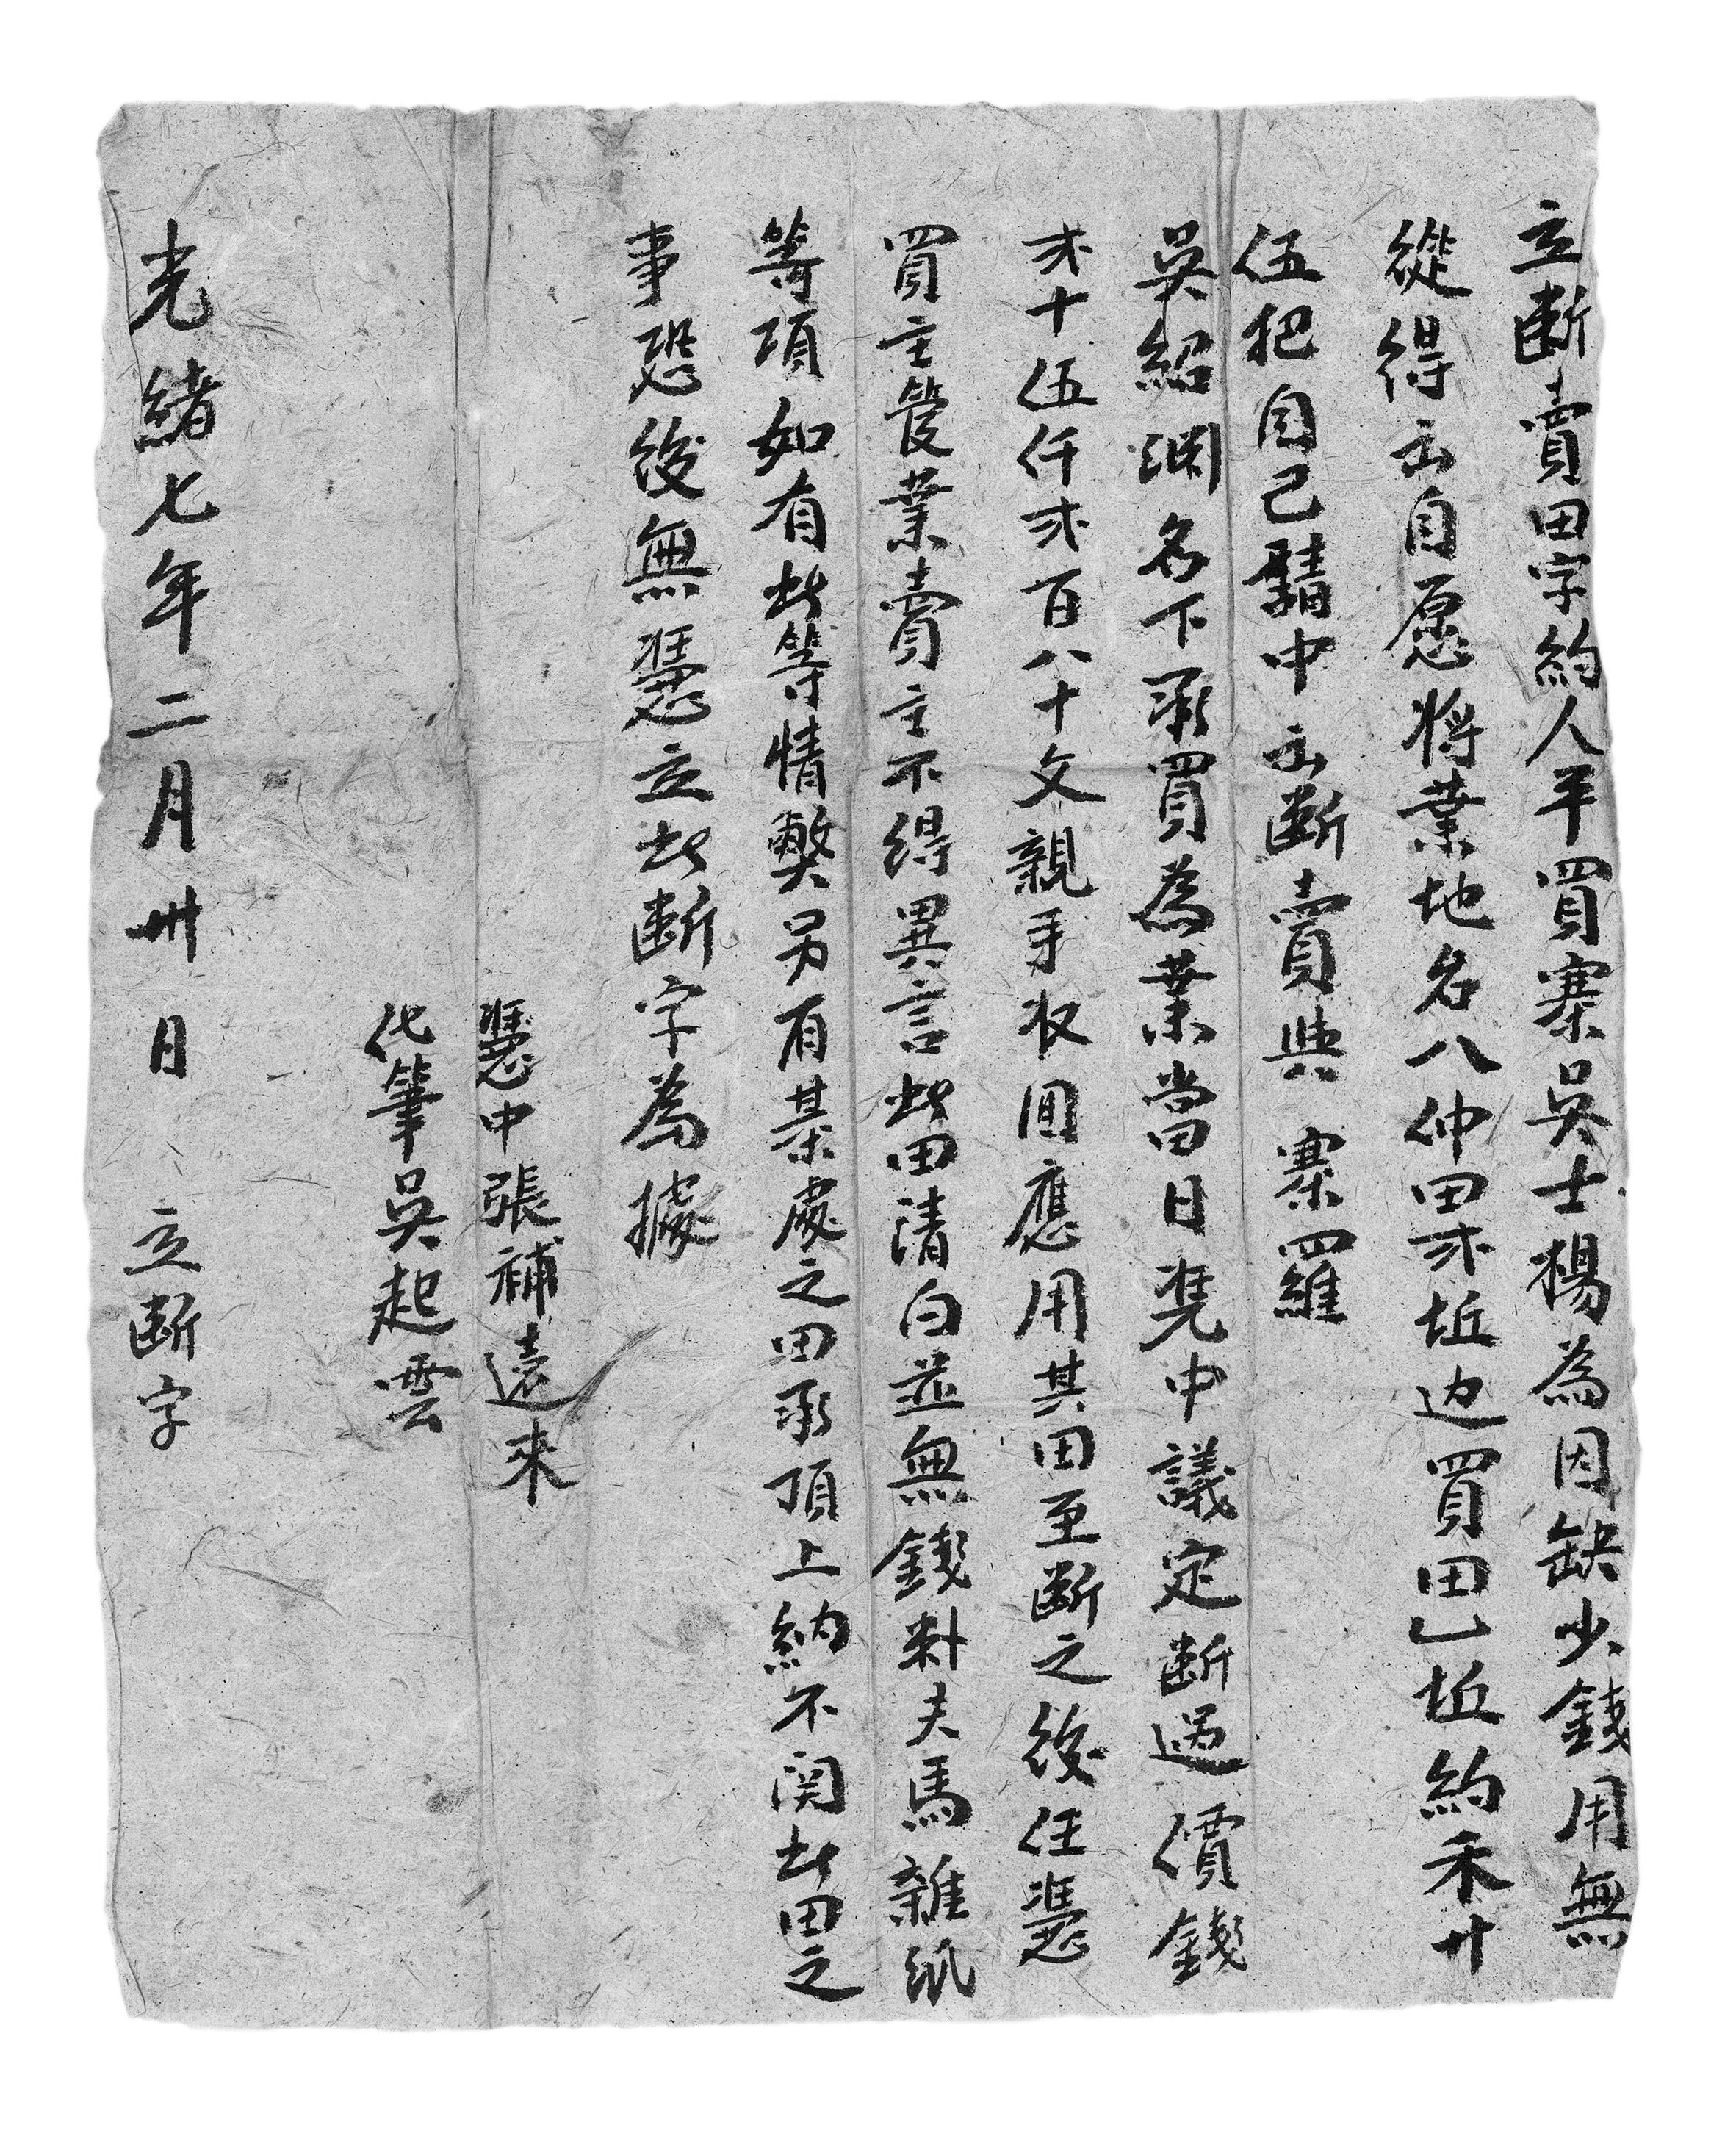 立断賣田字約人平買寨吳士楊為因缺少錢用無
從得出自愿將業地名八仲田弍坵边買田乚坵約禾廿
伍把自己請中出断賣與寨羅
吳紹渊名下承買為業當日凴中議定断過價錢
弍十伍仟弍百八十文親手收囬應用其田至断之後任憑
買主管業賣主不得異言此田清白並無錢粮夫馬雜紙
等項如有此等情獘另有某處之田承頂上納不関此田之
事恐後無憑立此断字為據
憑中張補遠來
代筆吳起雲
光緒七年二月卅日 立断字